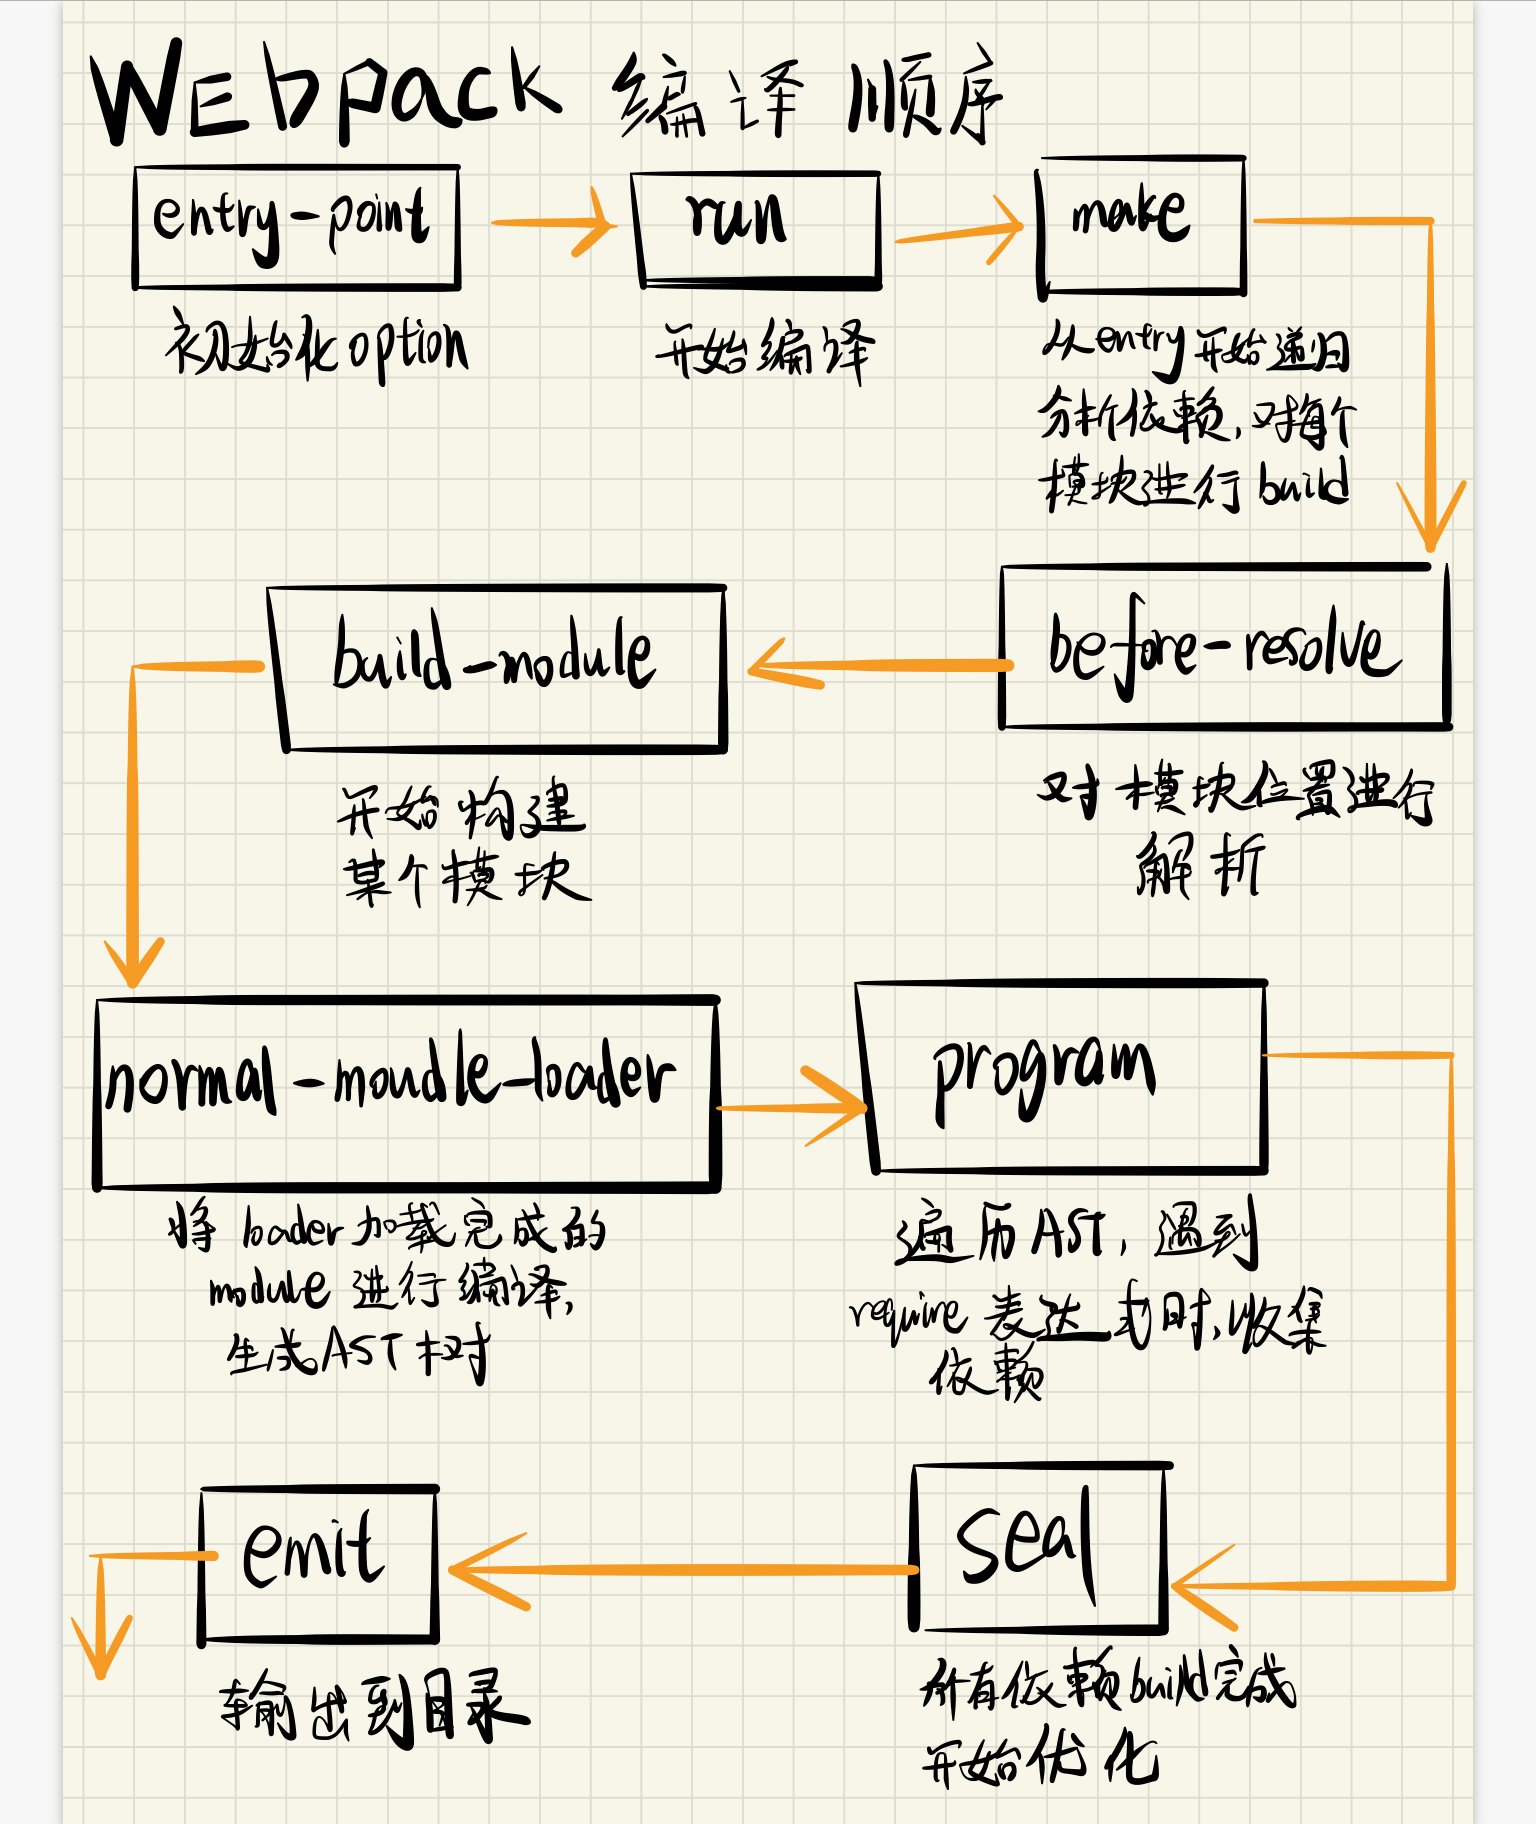 Webpack 编译顺序
entry-point
run
make
初始化option
开始编译
从entry开始递归
分析依赖,对每个
模块进行build
before-resolve
对模块位置进行
解析
build-module
开始构建
某个模块
normal-moudle-loader
将loader加载完成的
module进行编译,
生成AST树
program
遍历AST,遇到
require表达式时,收集
依赖
seal
所有依赖build完成
开始优化
emit
输出到目录